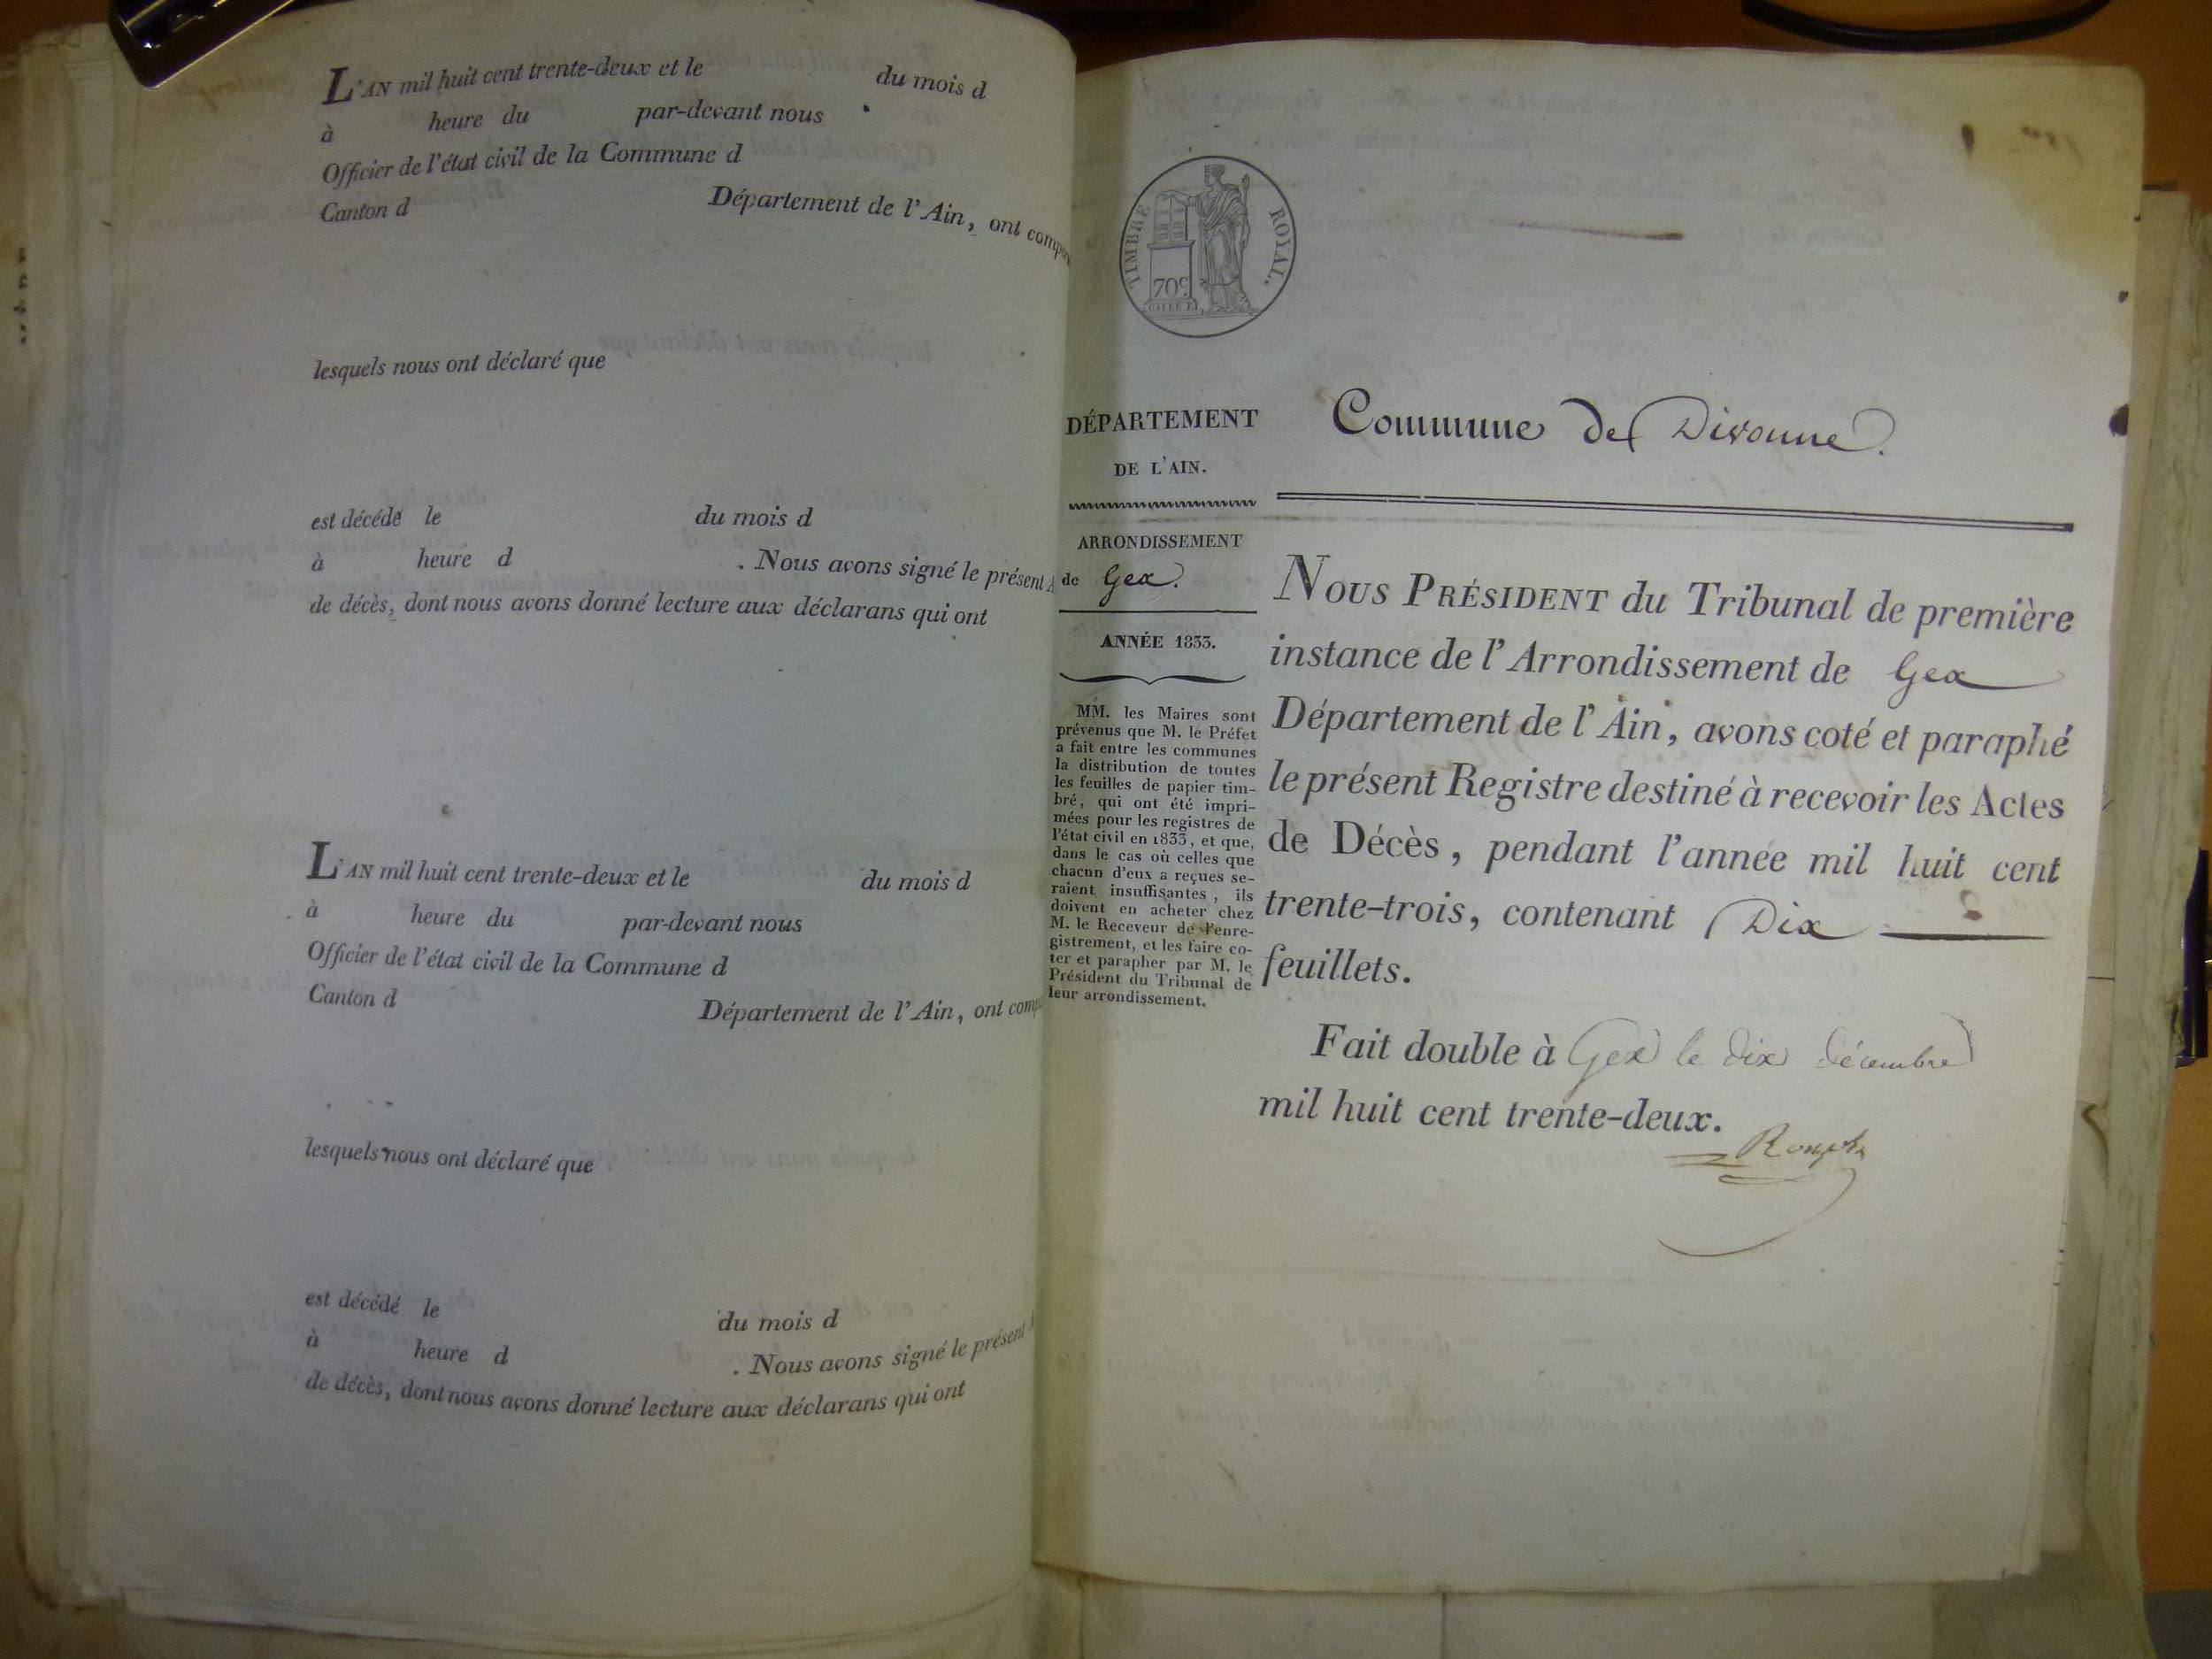 L'AN mil huit cent trente-deux et le du mois d
à heure du par-devant nous
Officier de l'état civil de la Commune d
Canton d Département de l'Ain, ont
lesquels nous ont déclaré que
est décédé le du mois d
à heure d . Nous avons signé le présent
de décès, dont nous avons donné lecture aux déclarans qui ont
L'AN mil huit cent trente-deux et le du mois d
à heure du par-devant nous
Officier de l'état civil de la Commune d
Canton d Département de l'Ain, ont
lesquels nous ont déclaré que
est décédé le du mois d
à heure d . Nous avons signé le présent
de décès, dont nous avons donné lecture aux déclarans qui ont
TIMBRE ROYAL.
70c
DÉPARTEMENT
DE L'AIN.
ARRONDISSEMENT
de Gex.
ANNÉE 1833.
MM. les Maires sont
prévenus que M. le Préfet
a fait entre les communes
la distribution de toutes
les feuilles de papier tim-
bré, qui ont été impri-
mées pour les registres de
l'état civil en 1833, et que,
dans le cas où celles que
chacun d'eux a reçues se-
raient insuffisantes, ils
doivent en acheter chez
M. le Receveur de l'enre-
gistrement, et les faire co-
ter et parapher par M. le
Président du Tribunal de
leur arrondissement.
Commune de Divonne.
NOUS PRÉSIDENT du Tribunal de première
instance de l'Arrondissement de Gex
Département de l'Ain, avons coté et paraphé
le présent Registre destiné à recevoir les Actes
de Décès, pendant l'année mil huit cent
trente-trois, contenant Dix
feuillets.
Fait double à Gex le dix décembre
mil huit cent trente-deux.